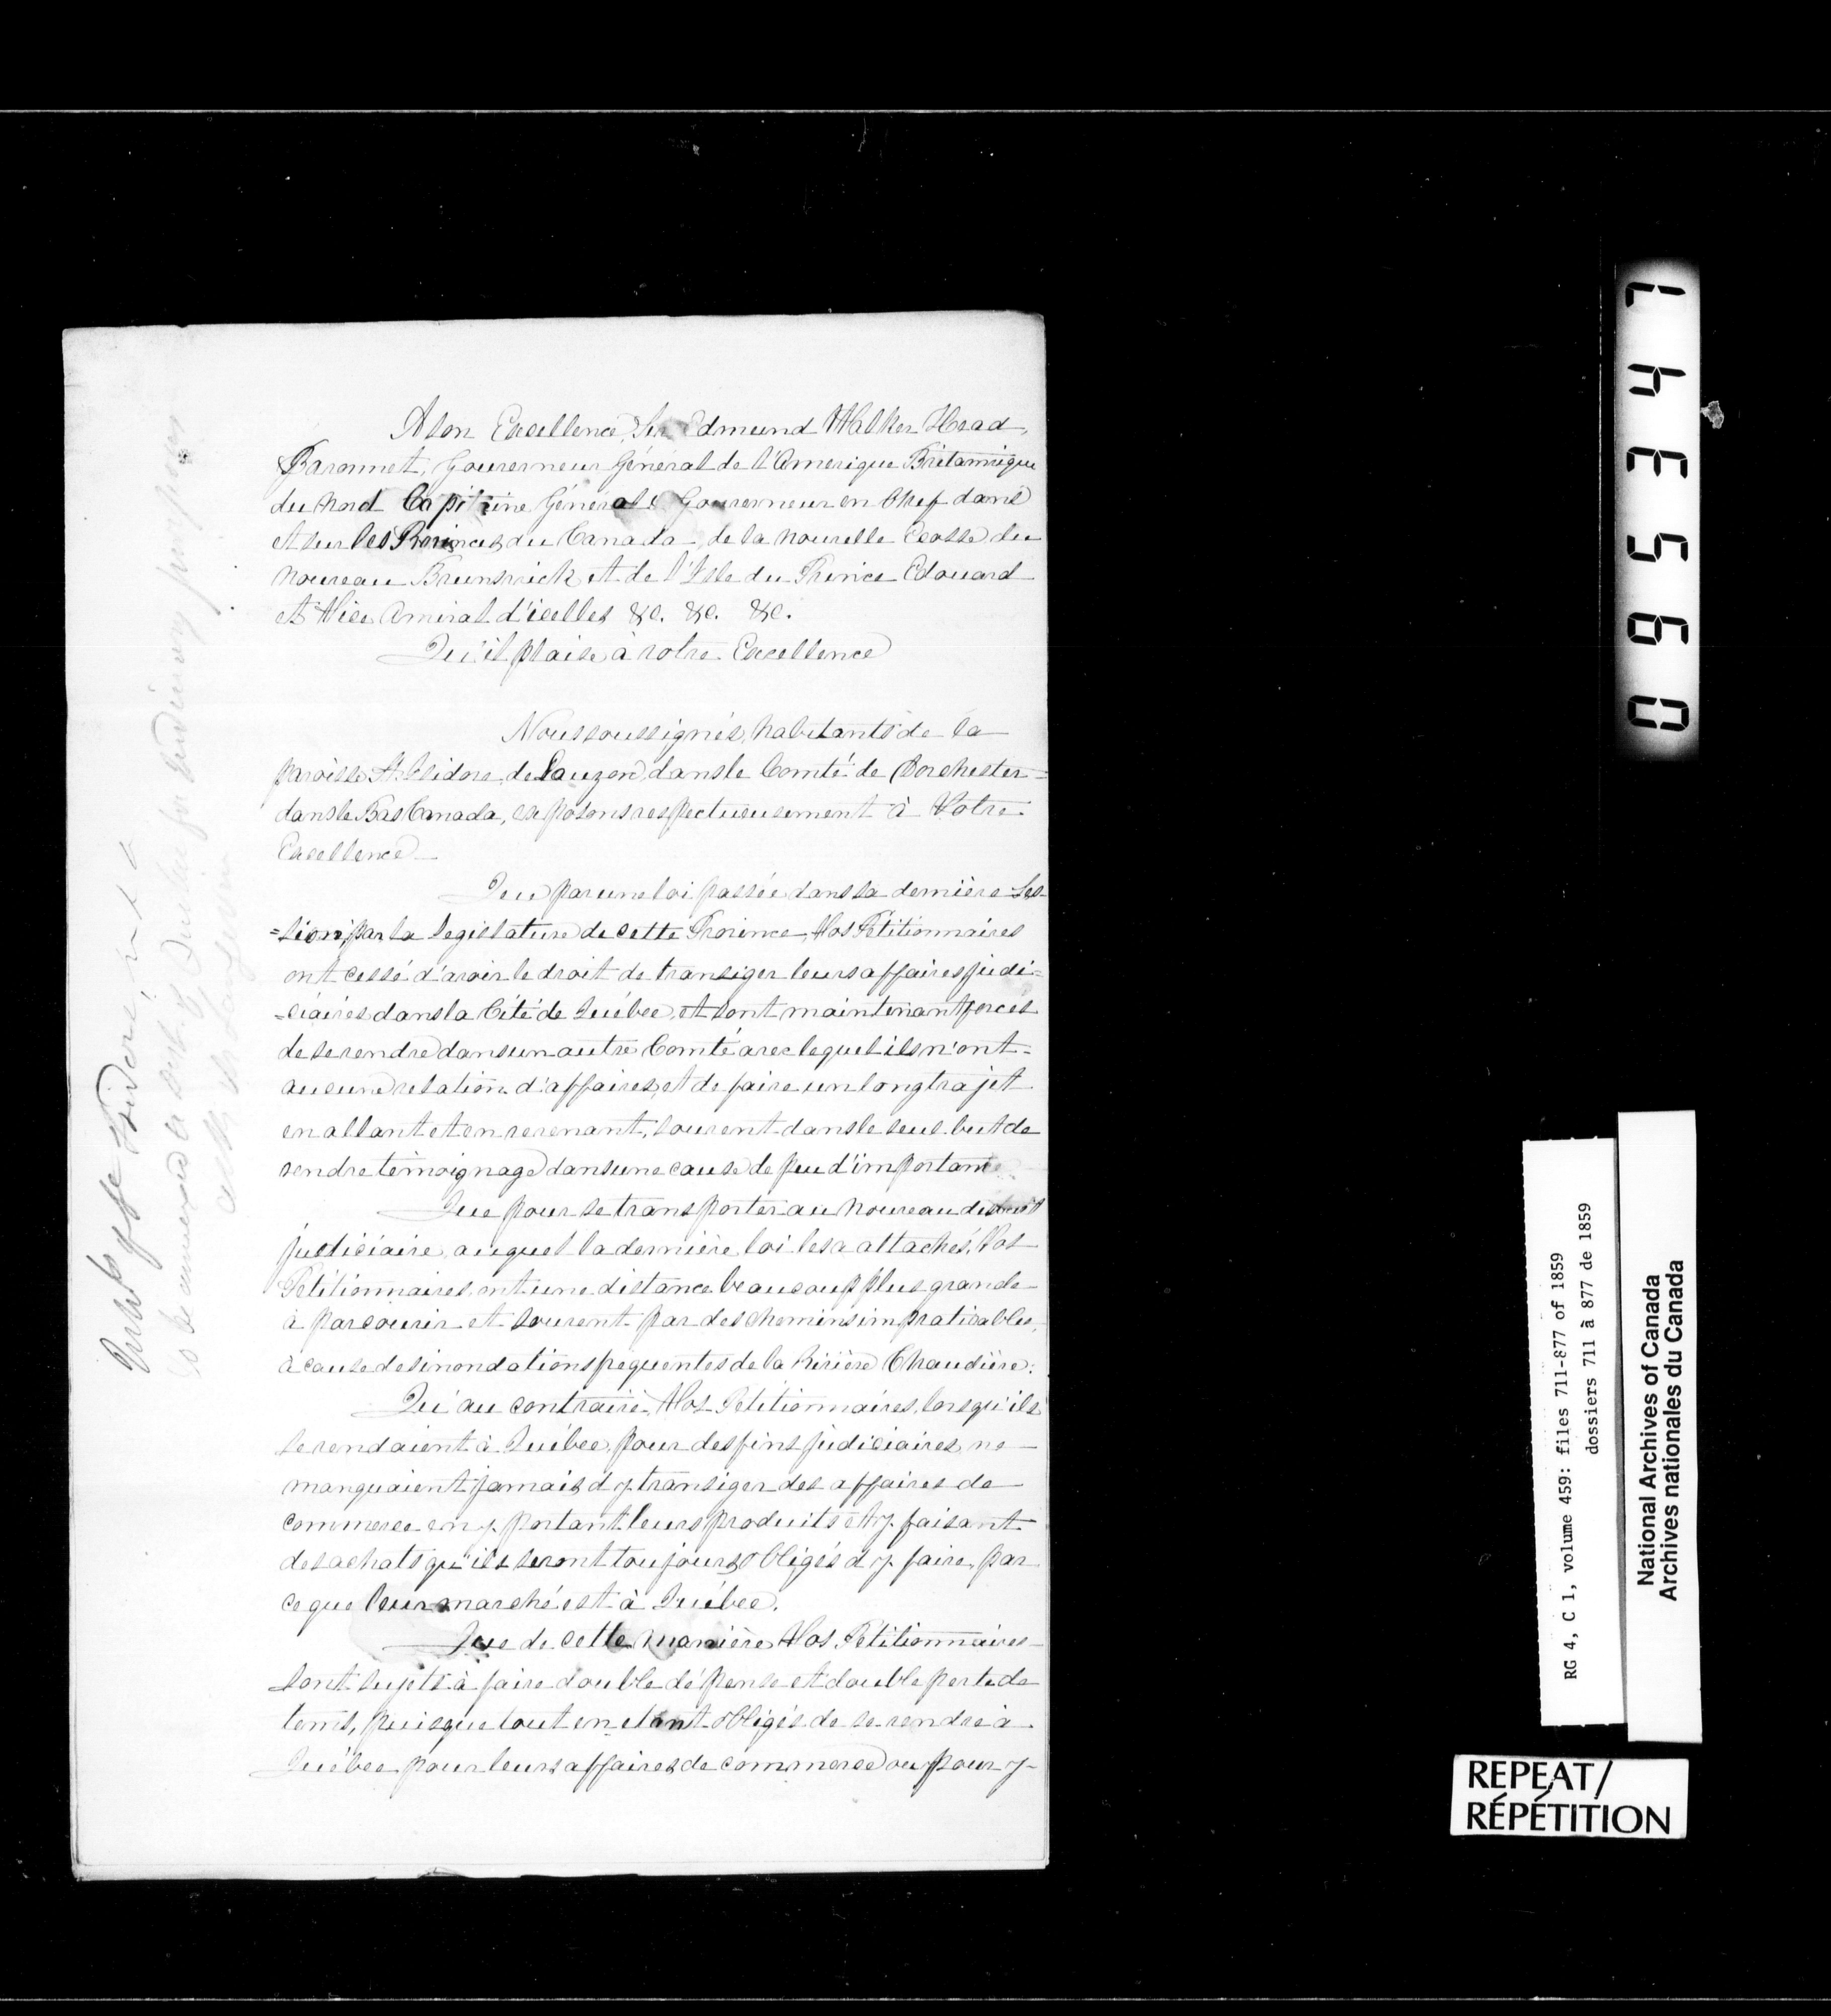 A Son Excellence, Sir Edmund Walker Head,
Baronnet, Gouverneur Général de l'Amerique Britannique
du Nord Capitaine Général & Gouverneur en Chef dans
et sur les Provinces du Canada, de la Nouvelle Ecosse, du
Nouveau Brunswick et de l'Isle du Prince Edouard
et Vice Amiral d'icelles &c. &c. &c.
Qu'il plaise à votre Excellence
Nous soussignés, habitants de la
paroisse St. Isidore de Lauzon, dans le Comté de Dorchester =
dans le Bas Canada, exposons respectueusement à Votre
Excellence
Que par une loi passée dans la dernière Ses-
=sion, par la Législature de cette Province, Vos Pétitionnaires
ont cessé d'avoir le droit de transiger leurs affaires judi=
=ciaires dans la Cité de Québec, et sont maintenant forcés
de se rendre dans un autre Comté avec lequel ils n'ont
aucune relation d'affaires, et de faire un long trajet
en allant et en revenant, souvent dans le seul but de
rendre témoignage dans une cause de peu d'importance
Que pour se transporter au nouveau district
judiciaire, auquel la dernière loi les a attachés, Vos
Pétitionnaires ont une distance beaucoup plus grande
à parcourir et souvent par des chemins impraticables,
à cause des inondations fréquentes de la Rivière Chaudière:
Qu'au contraire, Vos Pétitionnaires, lorsqu'ils
se rendaient à Québec, pour des fins judiciaires, ne
manquaient jamais d'y transiger des affaires de
commerce en y portant leurs produits et y faisant
des achats qu'ils seront toujours obligés d'y faire, par
ce que leur marché est à Québec.
Que de cette manière Vos Pétitionnaires
sont sujets à faire double dépense et double perte de
tems, puisque tout en étant obligés de se rendre à
Québec pour leurs affaires de commerce ou pour y
Parish of St Isidore,
to be annexed to Dist. of Quebec for Judiciary purposes
095347
RG 4, C 1, volume 459: files 711-877 of 1859
dossiers 711 à 877 de 1859
National Archives of Canada
Archives nationales du Canada
REPEAT/
RÉPÉTITION